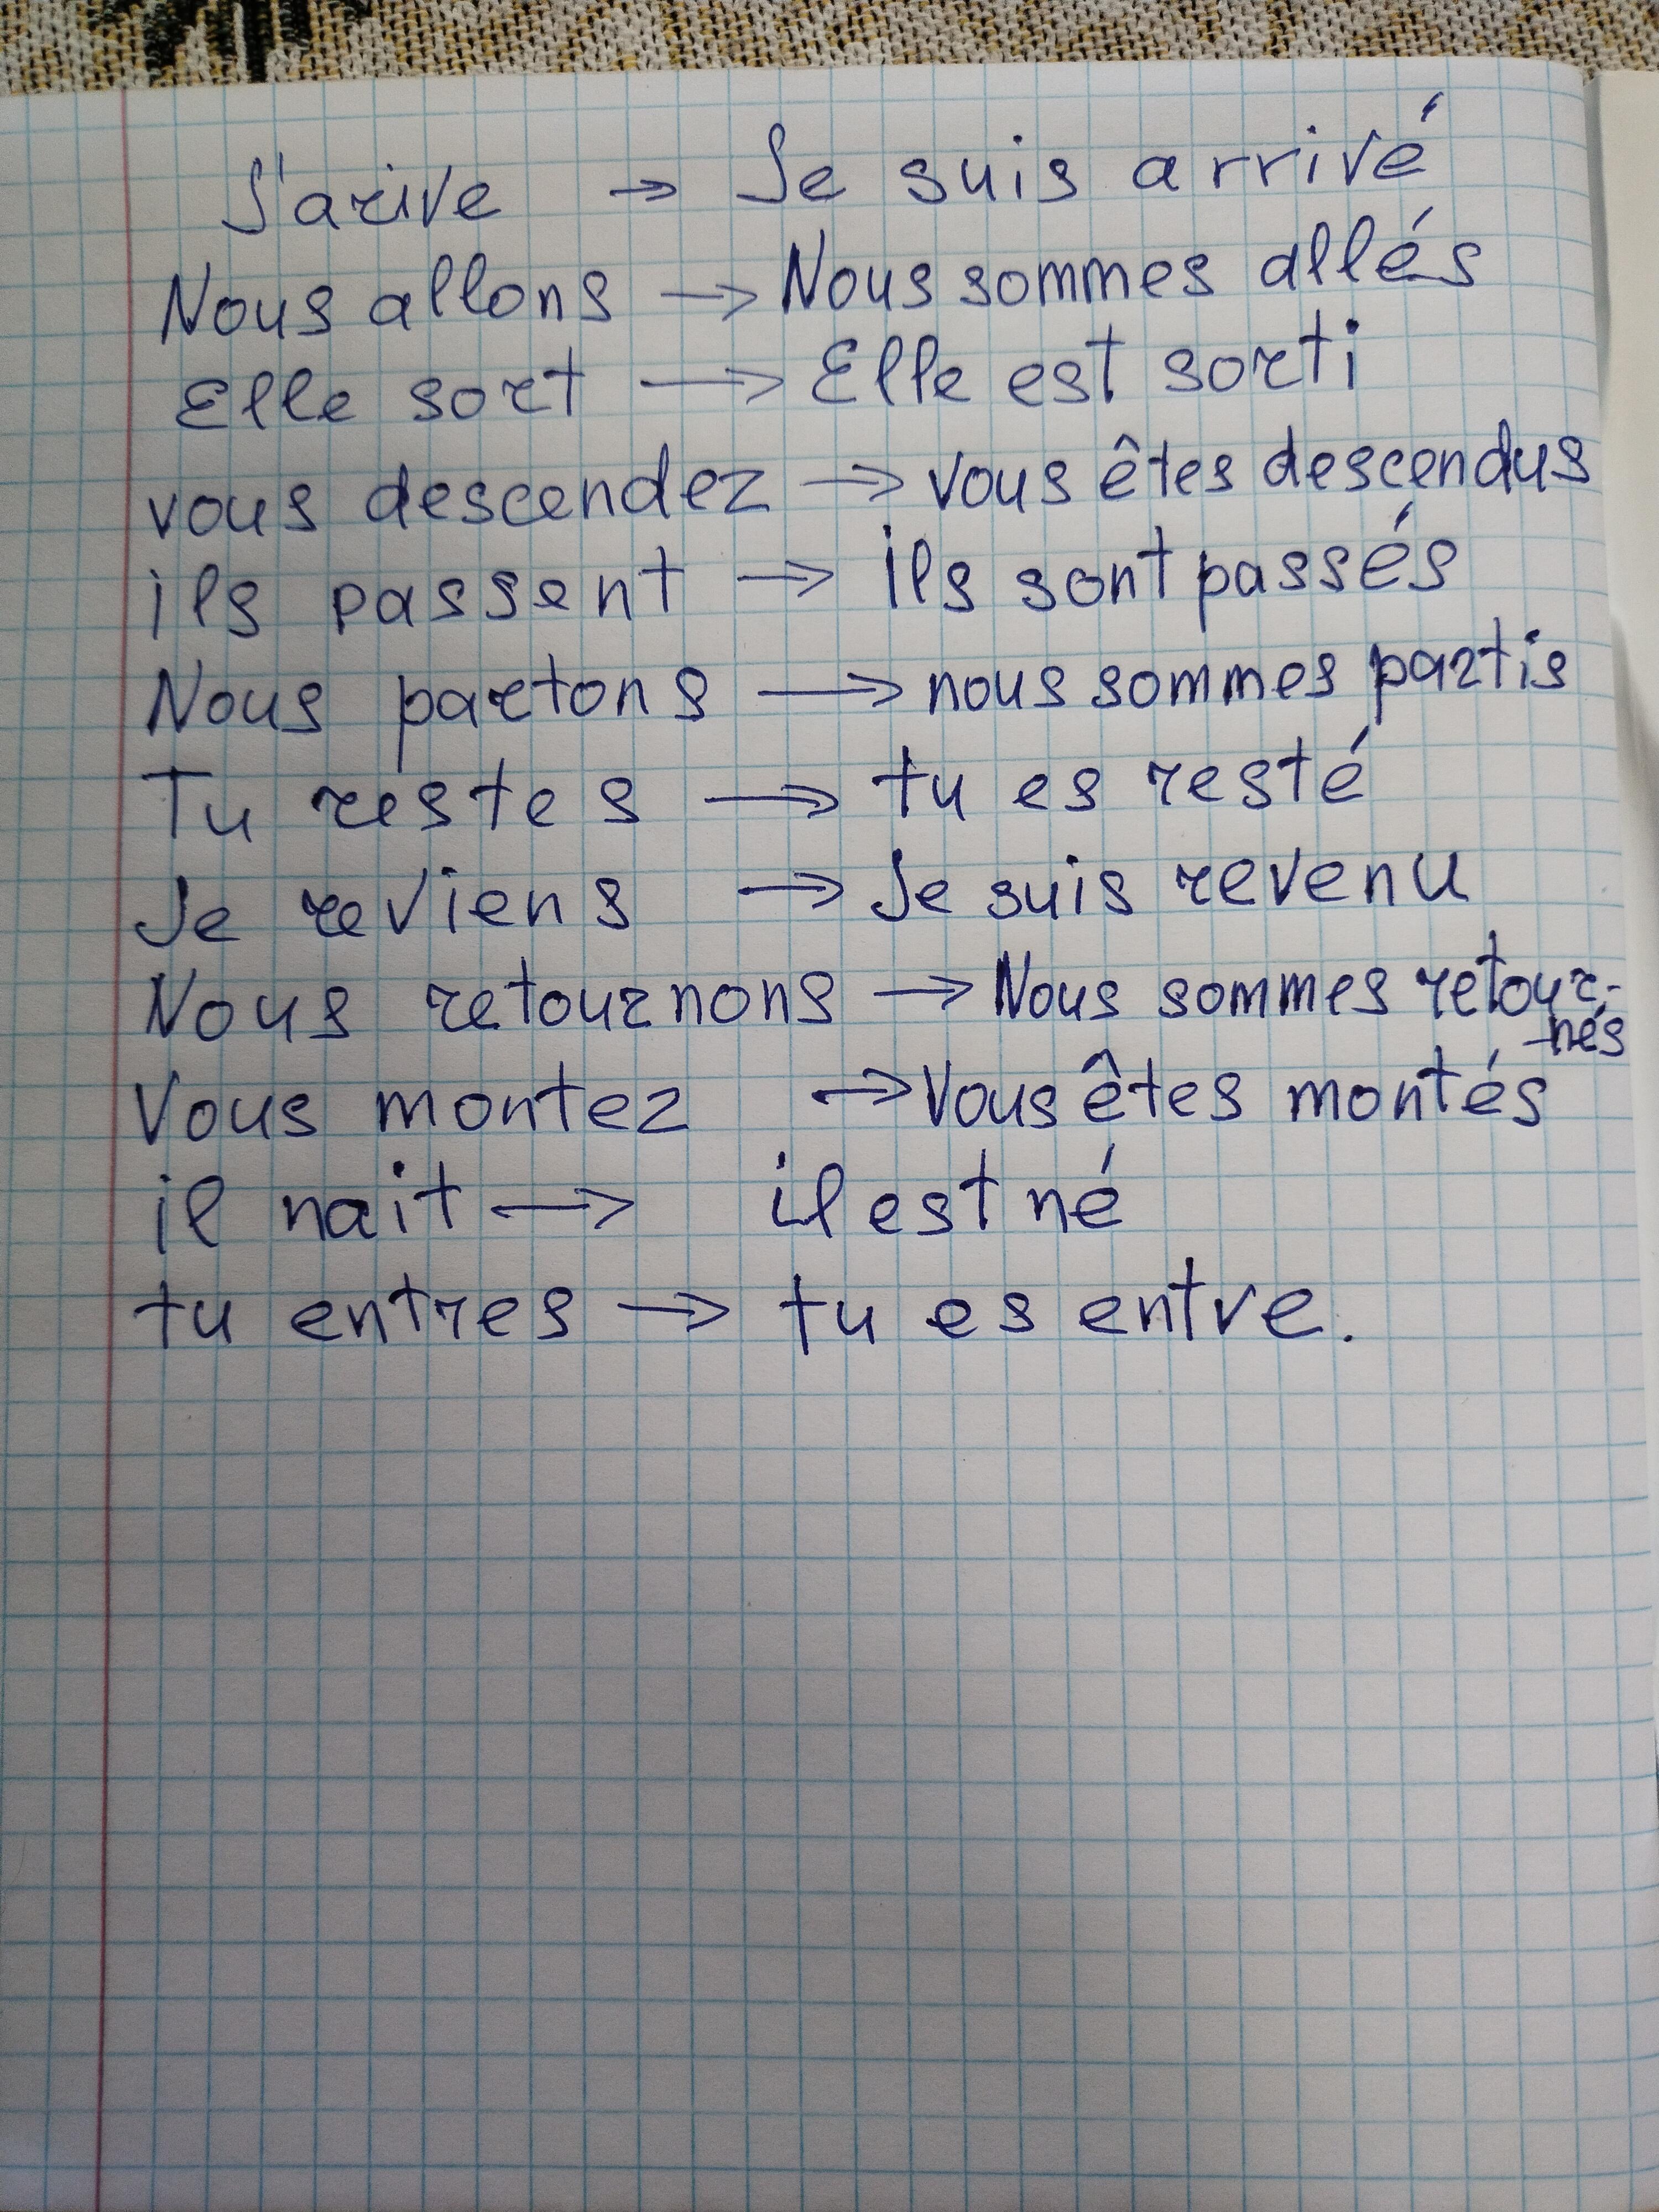 J'arive → Je suis arrivé
Nous allons → Nous sommes allés
Elle sort → Elle est sorti
vous descendez → vous êtes descendus
ils passent → ils sont passés
Nous partons → nous sommes partis
Tu restes → tu es resté
Je reviens → Je suis revenu
Nous retournons → Nous sommes retour-
nés
Vous montez → Vous êtes montés
il nait → il est né
tu entres → tu es entre.